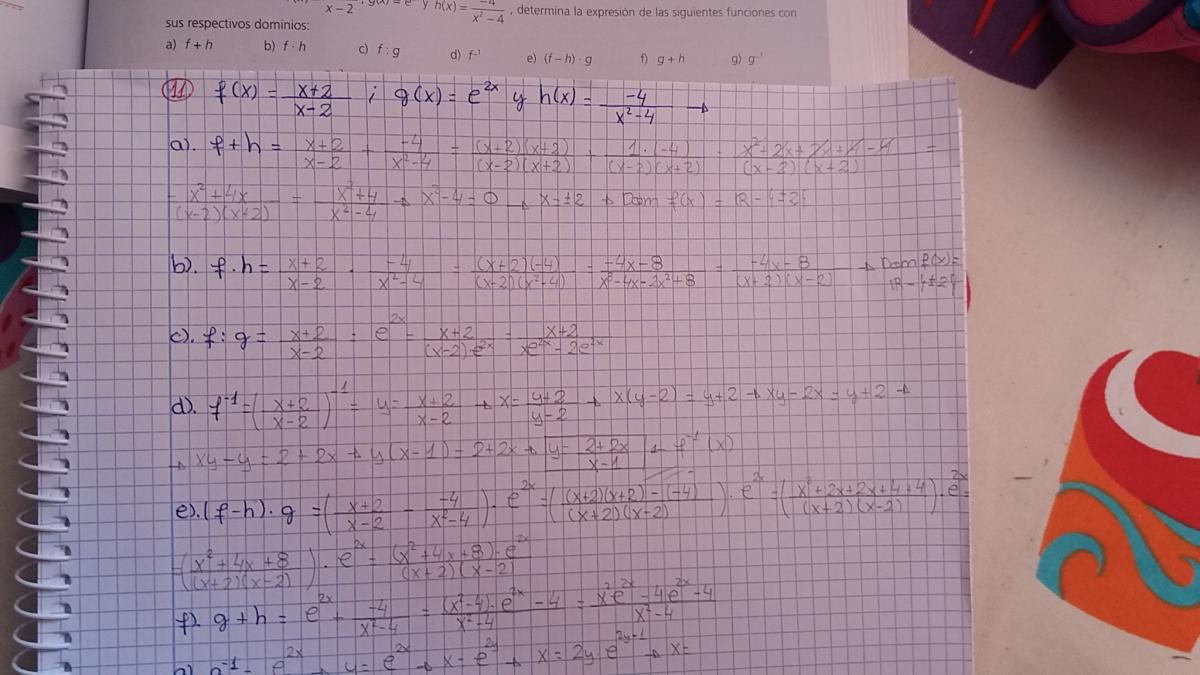 x-2 g(x) = e y h(x) = -4/(x²-4), determina la expresión de las siguientes funciones con
sus respectivos dominios:
a) f + h b) f · h c) f : g d) f⁻¹ e) (f – h) · g f) g + h g) g⁻¹
11 f(x) = (x+2)/(x-2) ; g(x) = e^(2x) y h(x) = -4/(x²-4) →
a). f+h = (x+2)/(x-2) + -4/(x²-4) = (x+2)(x+2)/((x-2)(x+2)) + 1·(-4)/((x-2)(x+2)) = (x²+2x+2x+4-4)/((x-2)(x+2)) =
= (x²+4x)/((x-2)(x+2)) = (x²+4)/(x²-4) → x²-4=0 → x=±2 → Dom f(x) = ℝ-{±2}
b). f·h = (x+2)/(x-2) · -4/(x²-4) = (x+2)(-4)/((x+2)(x²-4)) = (-4x-8)/(x³-4x-2x²+8) = (-4x-8)/((x+2)(x-2)) → Dom f(x)=
ℝ-{±2}
c). f:g = (x+2)/(x-2) : e^(2x) = (x+2)/((x-2)·e^(2x)) = (x+2)/(xe^(2x)-2e^(2x))
d). f⁻¹ = ((x+2)/(x-2))⁻¹ = y = (x+2)/(x-2) → x = (y+2)/(y-2) → x(y-2) = y+2 → xy-2x = y+2 →
→ xy-y = 2+2x → y(x-1) = 2+2x → y = (2+2x)/(x-1) ← f⁻¹(x)
e). (f-h)·g = ((x+2)/(x-2) - -4/(x²-4)) · e^(2x) = (((x+2)(x+2)-(-4))/((x+2)(x-2))) · e^(2x) = ((x²+2x+2x+4+4)/((x+2)(x-2))) · e^(2x) =
= ((x²+4x+8)/((x+2)(x-2))) · e^(2x) = (x²+4x+8)·e^(2x)/((x+2)(x-2))
f). g+h = e^(2x) + -4/(x²-4) = ((x²-4)·e^(2x)-4)/(x²-4) = (x²e^(2x)-4e^(2x)-4)/(x²-4)
g) g⁻¹ = e^(2x) → y = e^(2x) → x = e^(2y) → x = 2y e^(2y-1) → x=